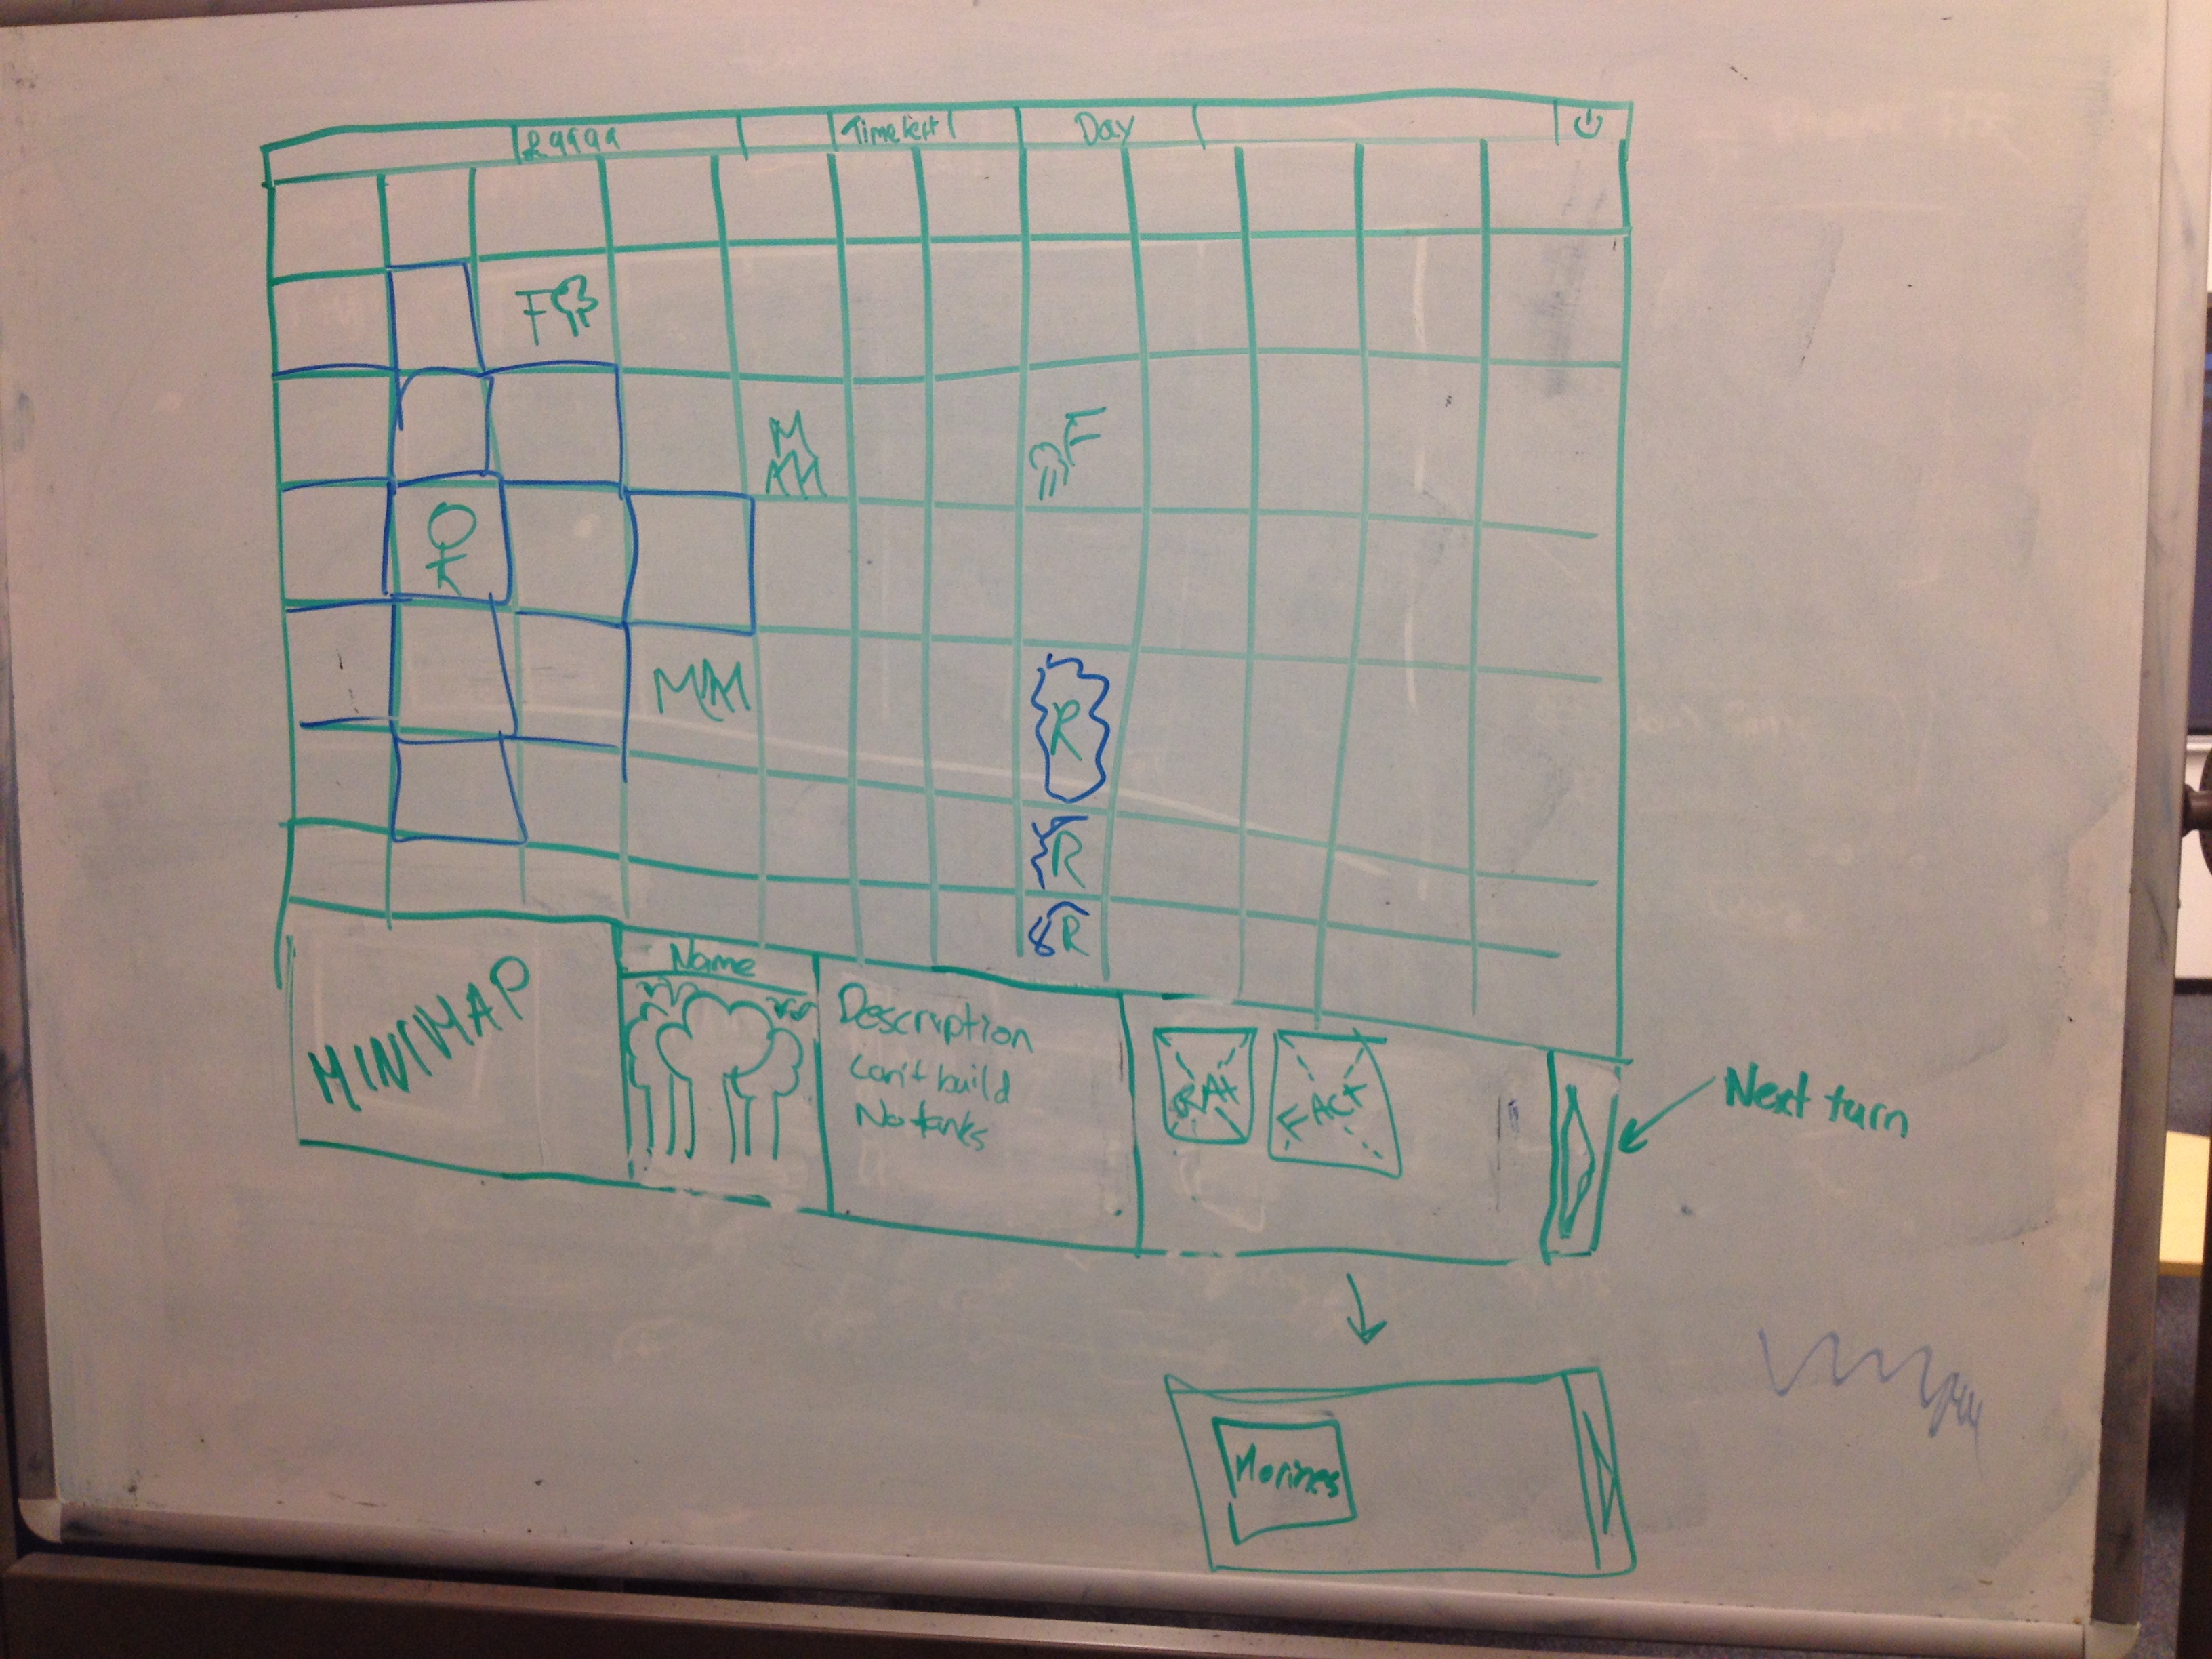 £9999
Time left
Day
F
M
MM
F
MM
R
R
R
MINIMAP
Name
Description
Can't build
No tanks
FACT
Next turn
Marines